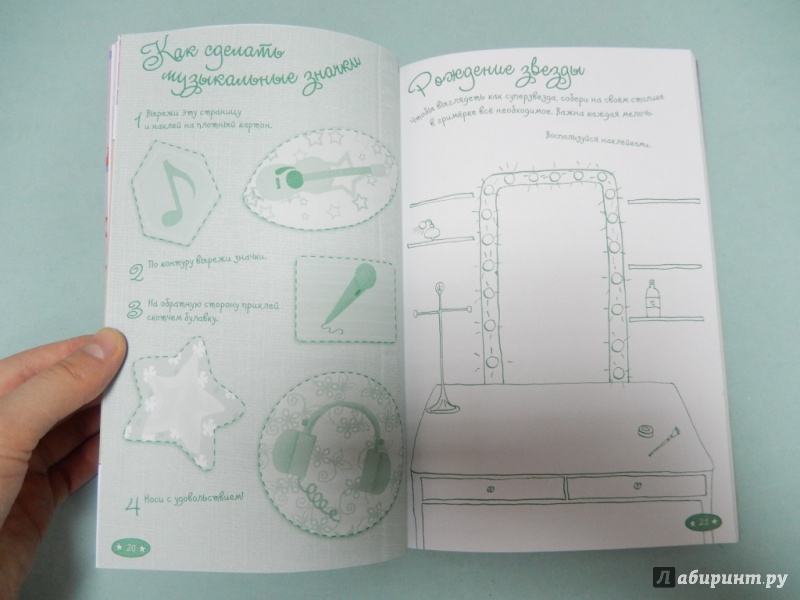 Как сделать
музыкальные значки
1 Вырежи эту страницу
и наклей на плотный картон.
2 По контуру вырежи значки.
3 На обратную сторону приклей
скотчем булавку.
4 Носи с удовольствием!
20
Рождение звезды
Чтобы выглядеть как суперзвезда, собери на своём столике
в гримёрке всё необходимое. Важна каждая мелочь.
Воспользуйся наклейками.
21
Лабиринт.ру